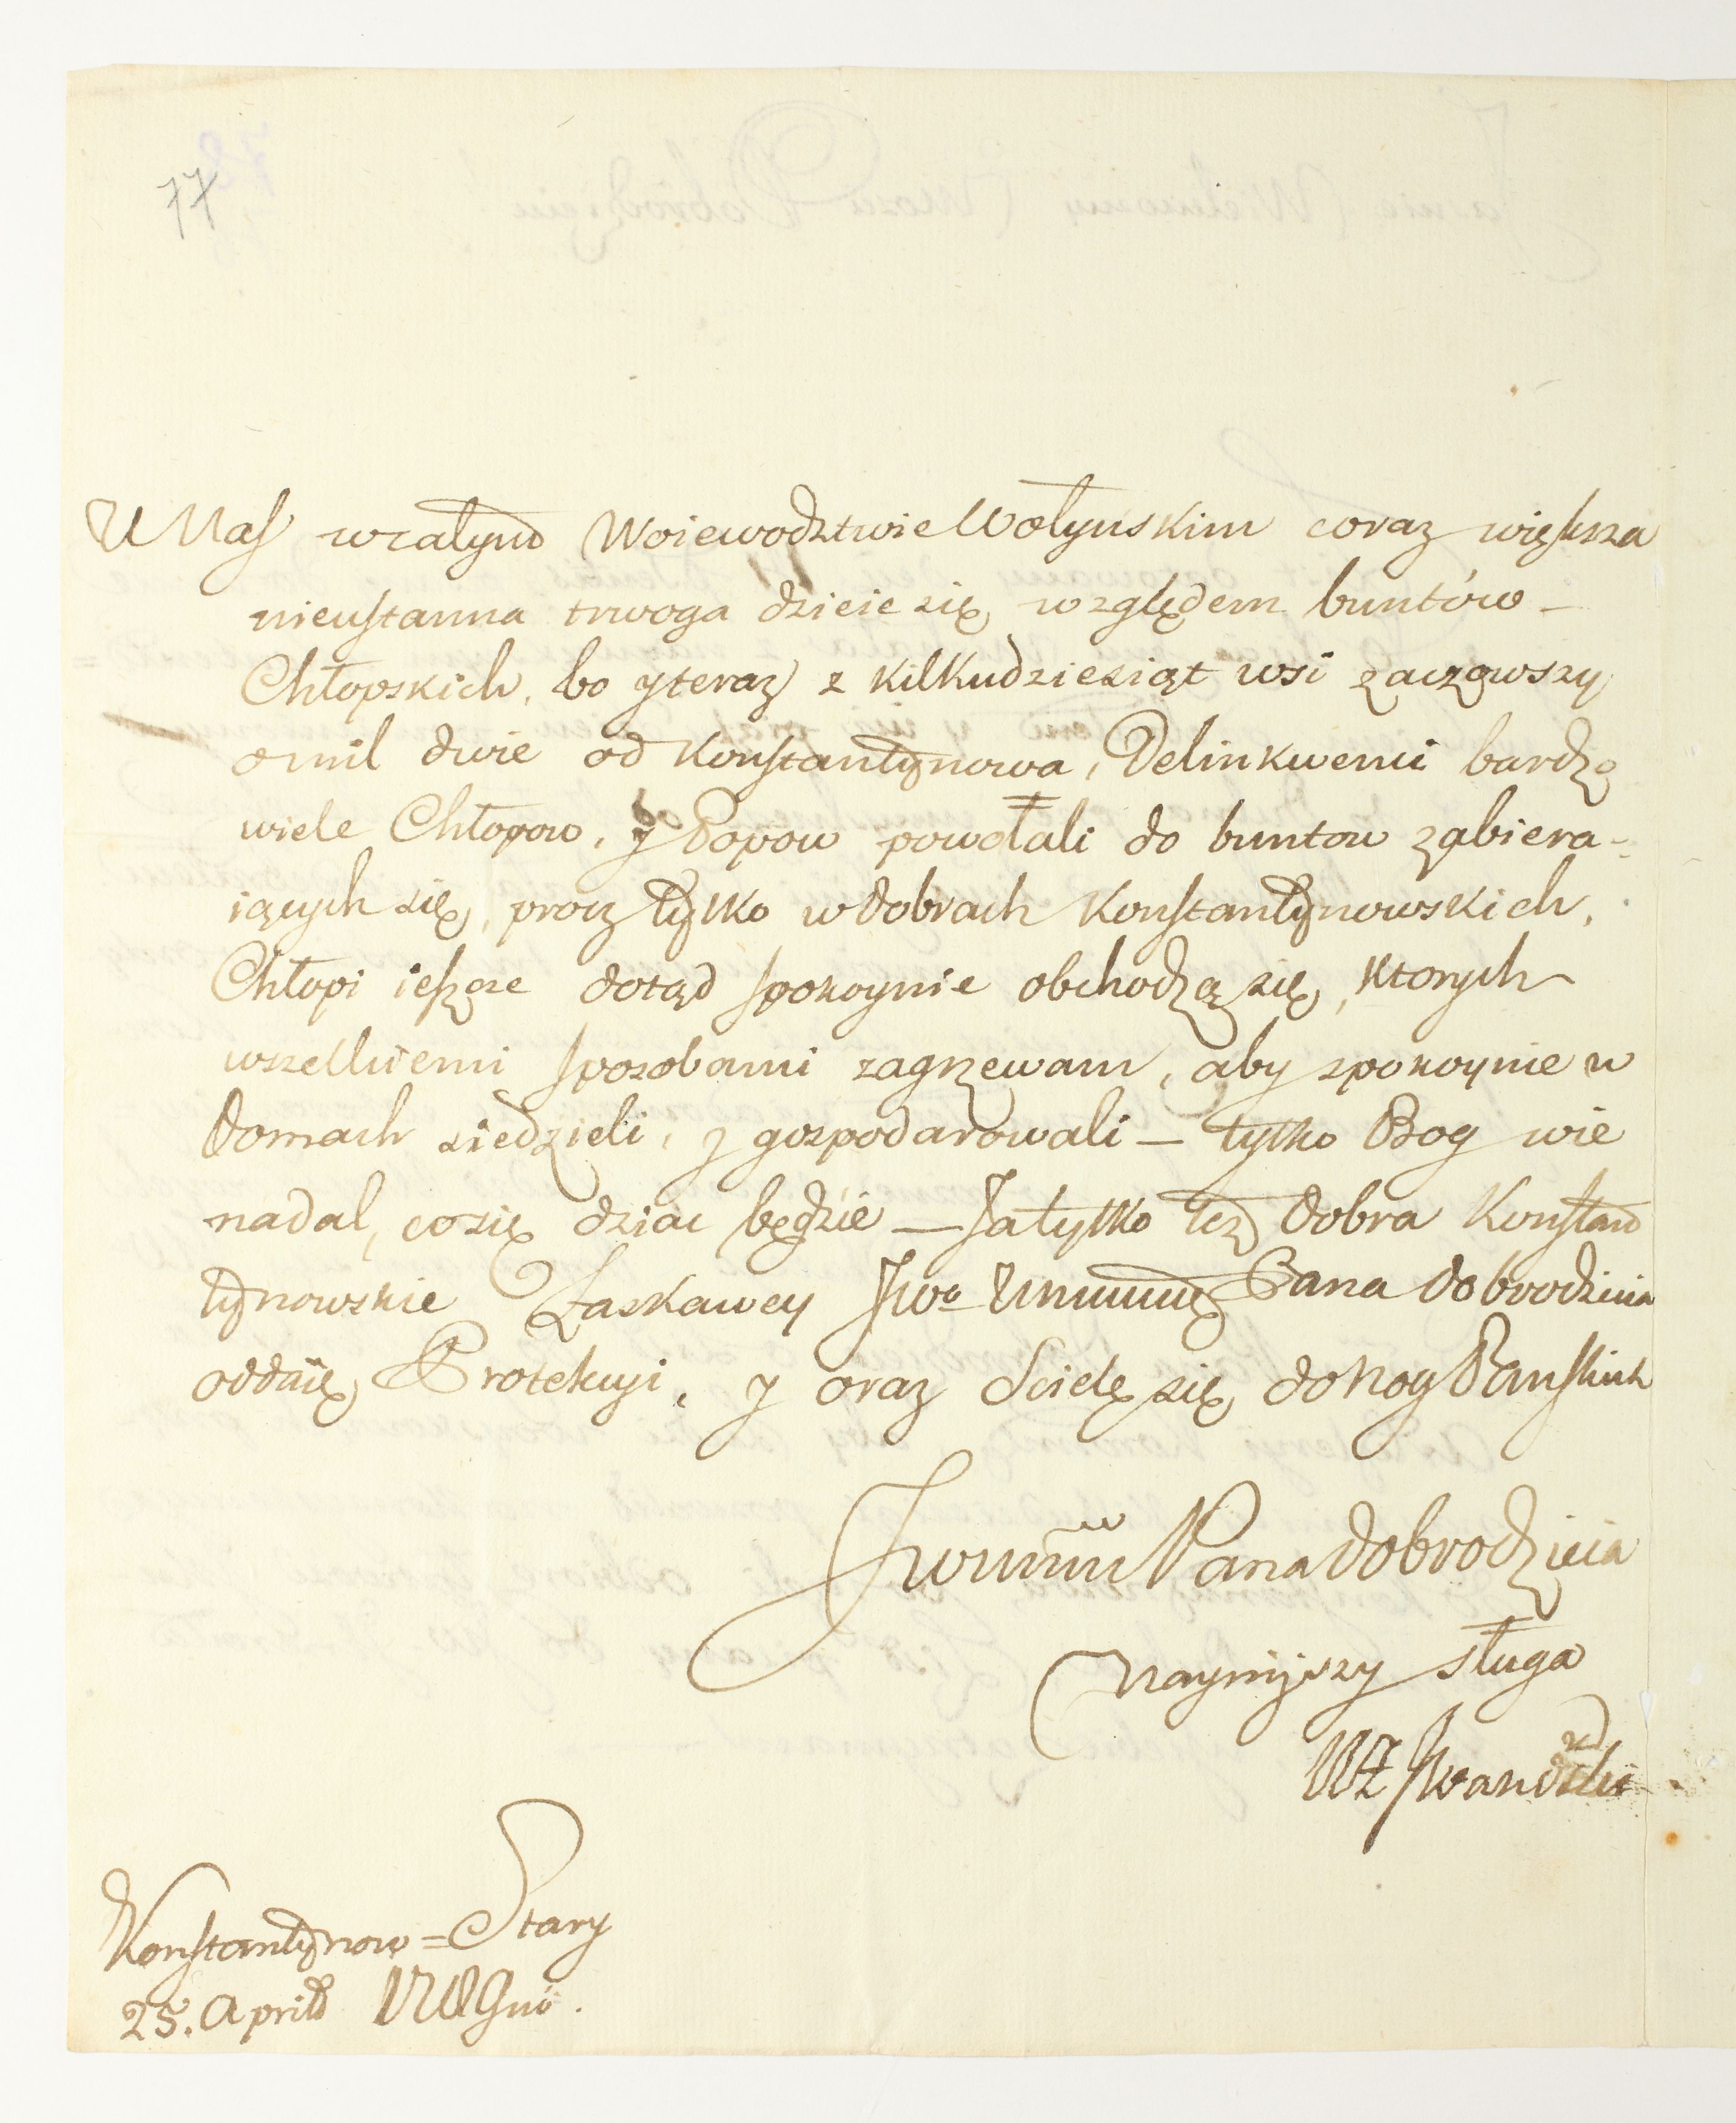 77
U Nas w całym Woiewodztwie Wołyńskim coraz większa
nieustanna trwoga dzieie się względem buntów –
Chłopskich, bo y teraz z kilkudziesiąt wsi zacząwszy
o mil dwie od Konstantynowa, Delinkwenci bardzo
wiele Chłopow, y Popow powołali do buntow zabiera-
iących się, procz tylko w dobrach Konstantynowskich,
Chłopi ieszcze dotąd spokoynie obchodzą się, ktorych
wszelkiemi sposobami zagrzewam, aby spokoynie w
domach siedzieli, y gospodarowali – tylko Bog wie
nadal, co się dziac będzie – Ja tylko też dobra Konstan
tynowskie Łaskawey Pana Dobrodzieia
oddaię Protekcyi, y oraz Scielę się do Nog Panskich
Pana Dobrodzieia
Nayniższy sługa
Iwanski
Konstantynow = Stary
25. Aprilis